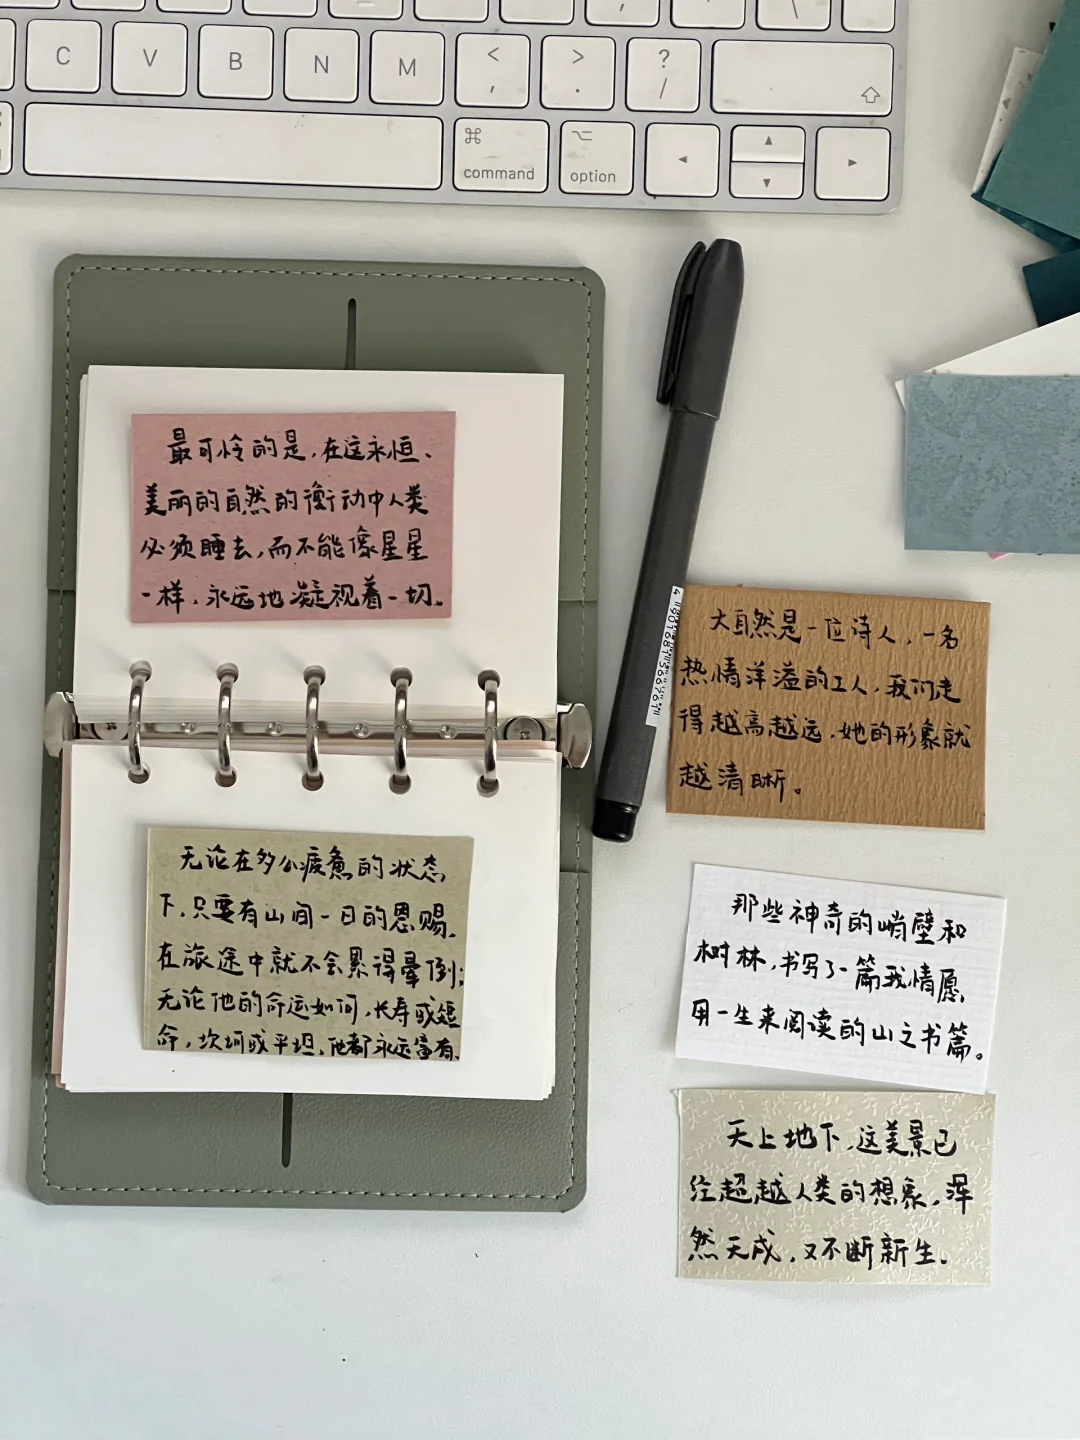 C V B N M < , > . ? /
⌘ command ⌥ option
最可怜的是，在这永恒、
美丽的自然的衡动中人类
必须睡去，而不能像星星
一样，永远地凝视着一切。
无论在多么疲惫的状态
下，只要有山间一日的恩赐，
在旅途中就不会累得晕倒；
无论他的命运如何，长寿或短
命，坎坷或平坦，他都永远富有。
4 901681 366761
大自然是一位诗人，一名
热情洋溢的工人，我们走
得越高越远，她的形象就
越清晰。
那些神奇的峭壁和
树林，书写了一篇我情愿
用一生来阅读的山之书篇。
天上地下，这美景已
经超越人类的想象，浑
然天成，又不断新生。